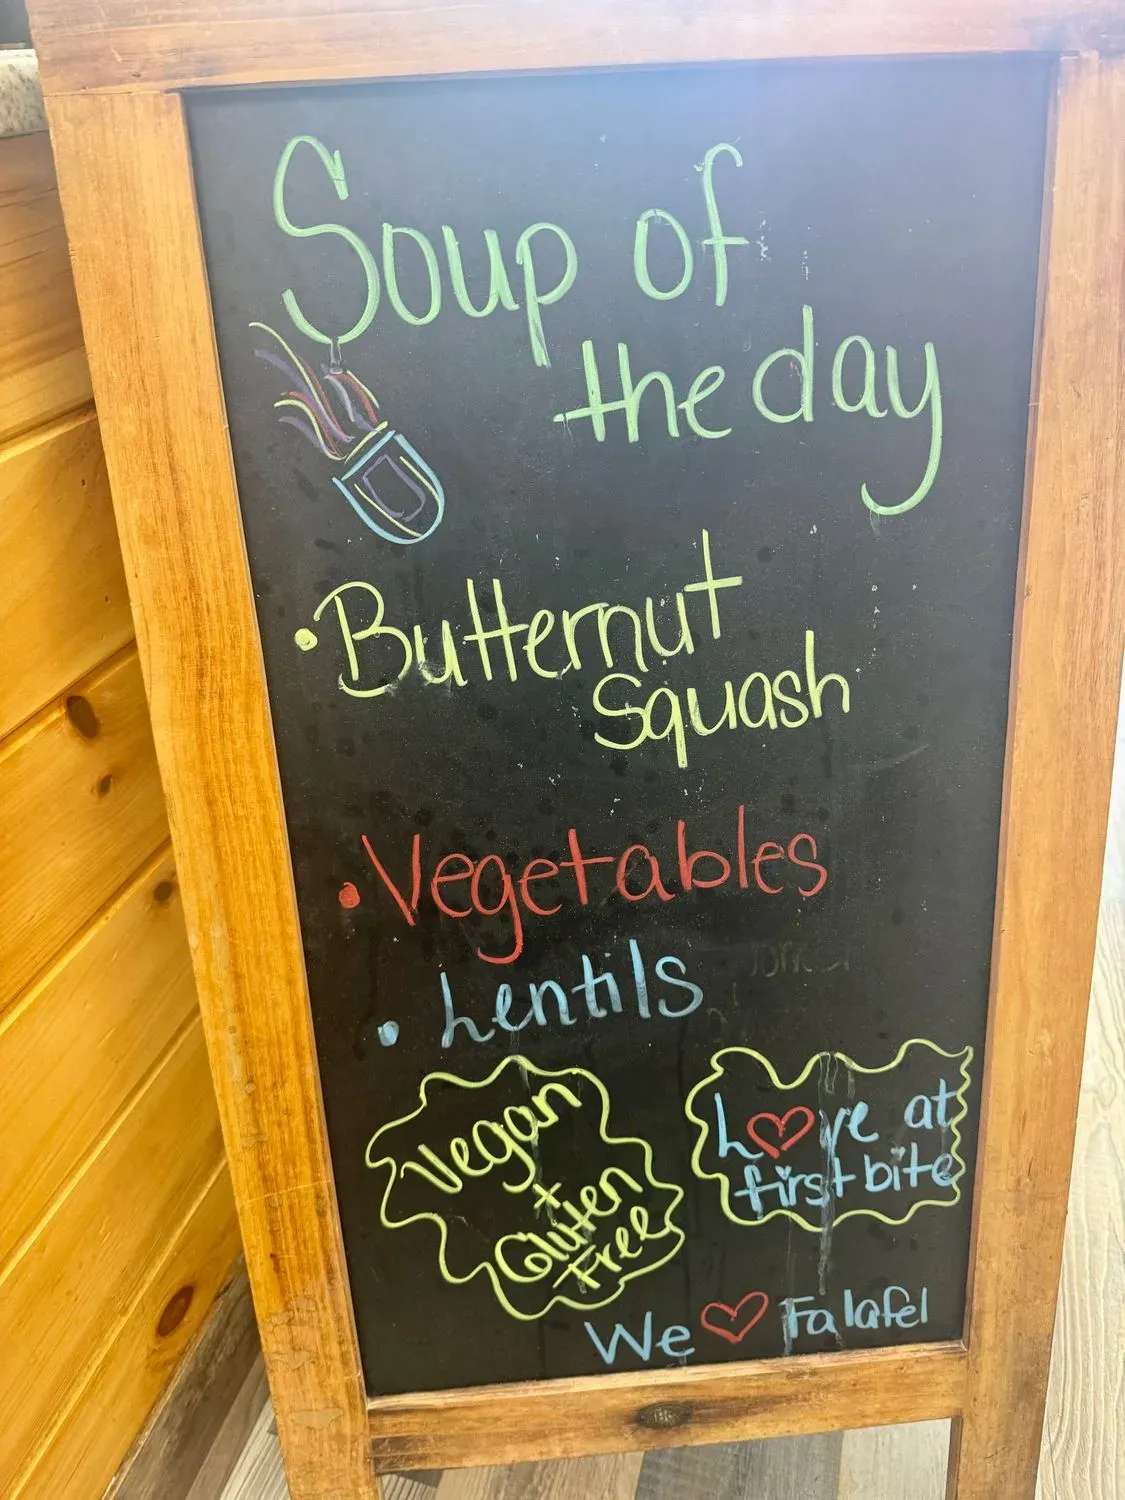 Soup of
the day
• Butternut
Squash
• Vegetables
• Lentils
Vegan
+
Gluten
Free
L❤ve at
first bite
We ❤ Falafel